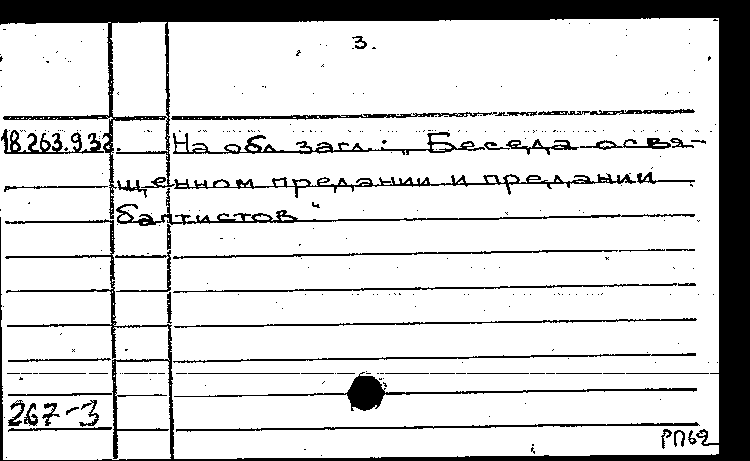 3.
18.263.9.32. На обл. загл.: „Беседа о свя-
щенном предании и предании
баптистов"
267-3
РП62